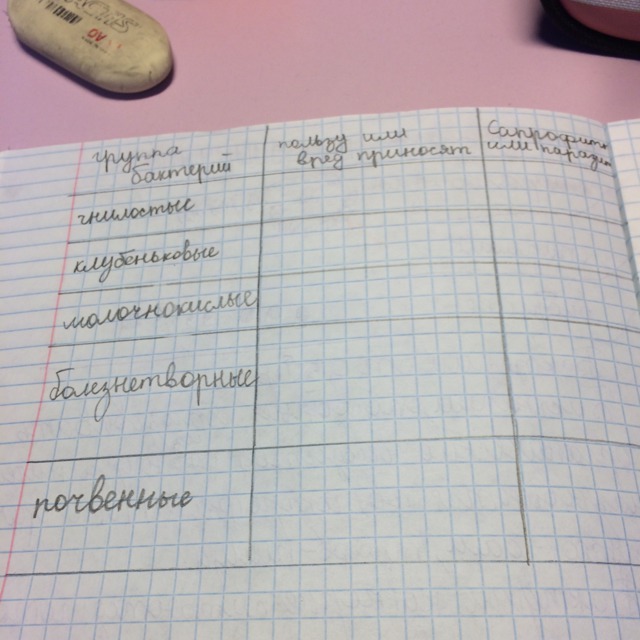 группа
бактерий
пользу или
вред приносят
Сапрофиты
или
гнилостные
клубеньковые
молочнокислые
болезнетворные
почвенные